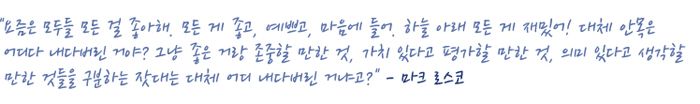 "요즘은 모두들 모든 걸 좋아해. 모든 게 좋고, 예쁘고, 마음에 들어. 하늘 아래 모든 게 재밌어! 대체 안목은
어디다 내다버린 거야? 그냥 좋은 거랑 존중할 만한 것, 가치 있다고 평가할 만한 것, 의미 있다고 생각할
만한 것들을 구분하는 잣대는 대체 어디 내다버린 거냐고?" - 마크 로스코